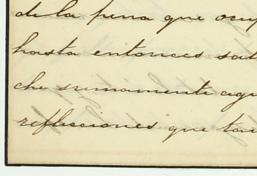 de la pena que ocup
hasta entonces sat
che sumamente agi
reflecciones que tan